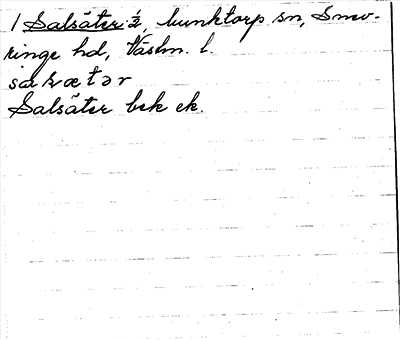 1 Salsäter ½, Munktorp sn, Snev-
ringe hd, Västm. l.
salsætər
Salsäter bek ek.